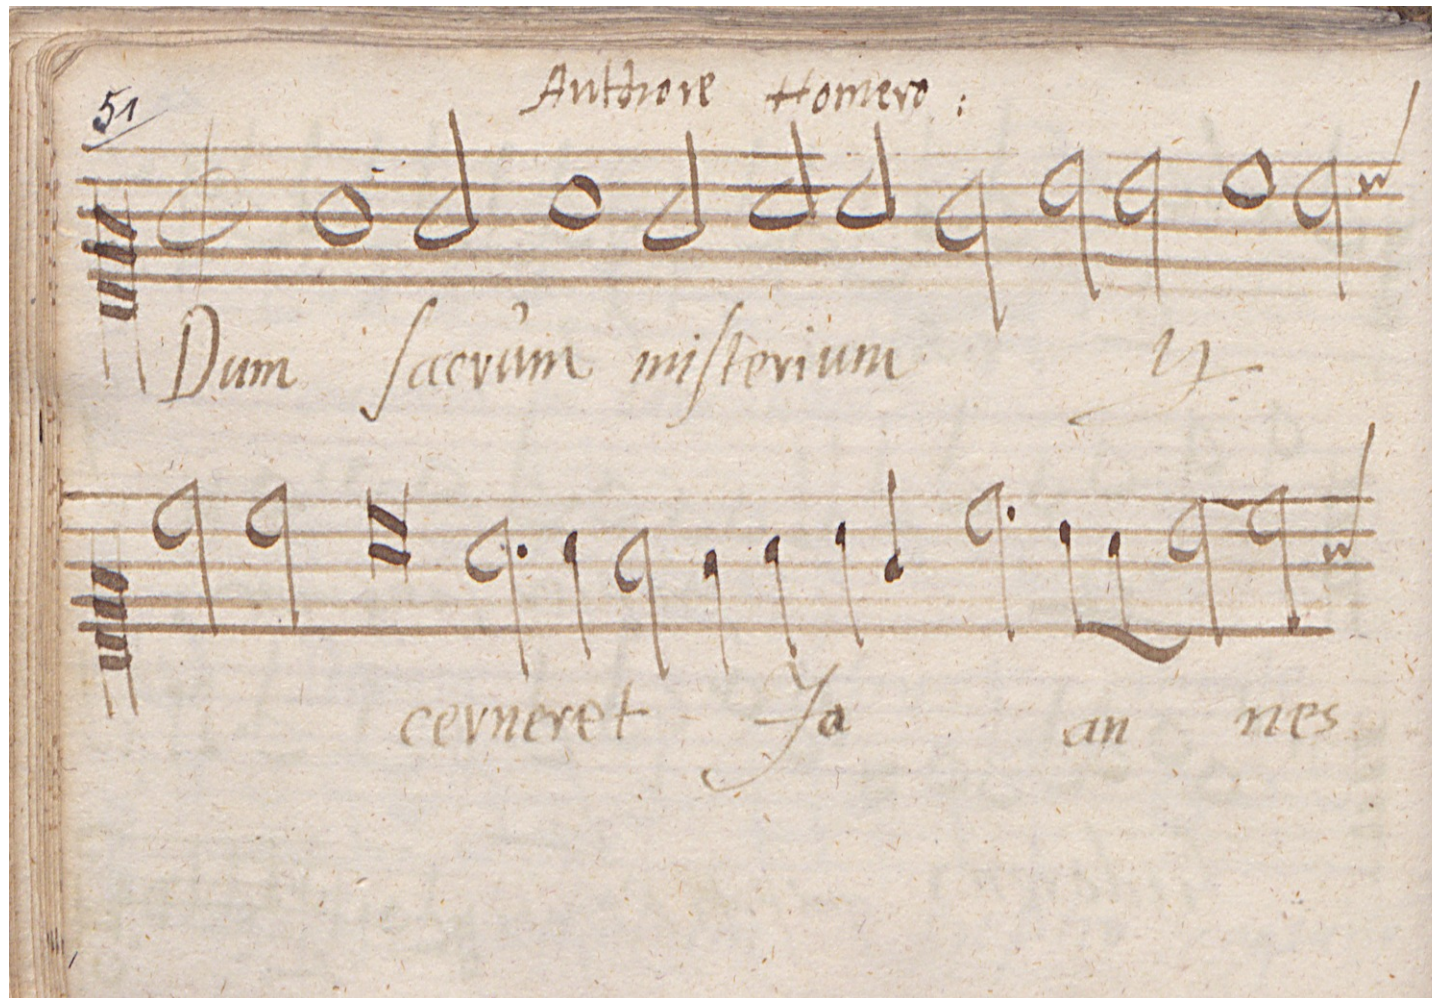 51
Authore Homero :
Dum sacrum misterium ij
cerneret Jo an nes